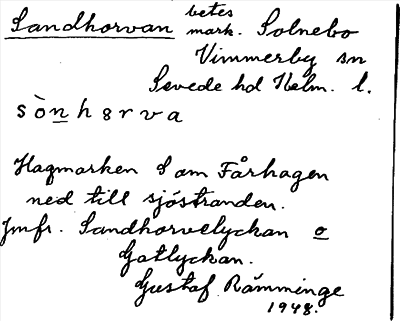 Sandhorvan betes mark. Solnebo
Vimmerby sn
Sevede hd Kalm. l.
sònhərva
Hagmarken S om Fårhagen
ned till sjöstranden.
Jmfr. Sandhorvelyckan o
Gatlyckan.
Gustaf Rämminge
1948.